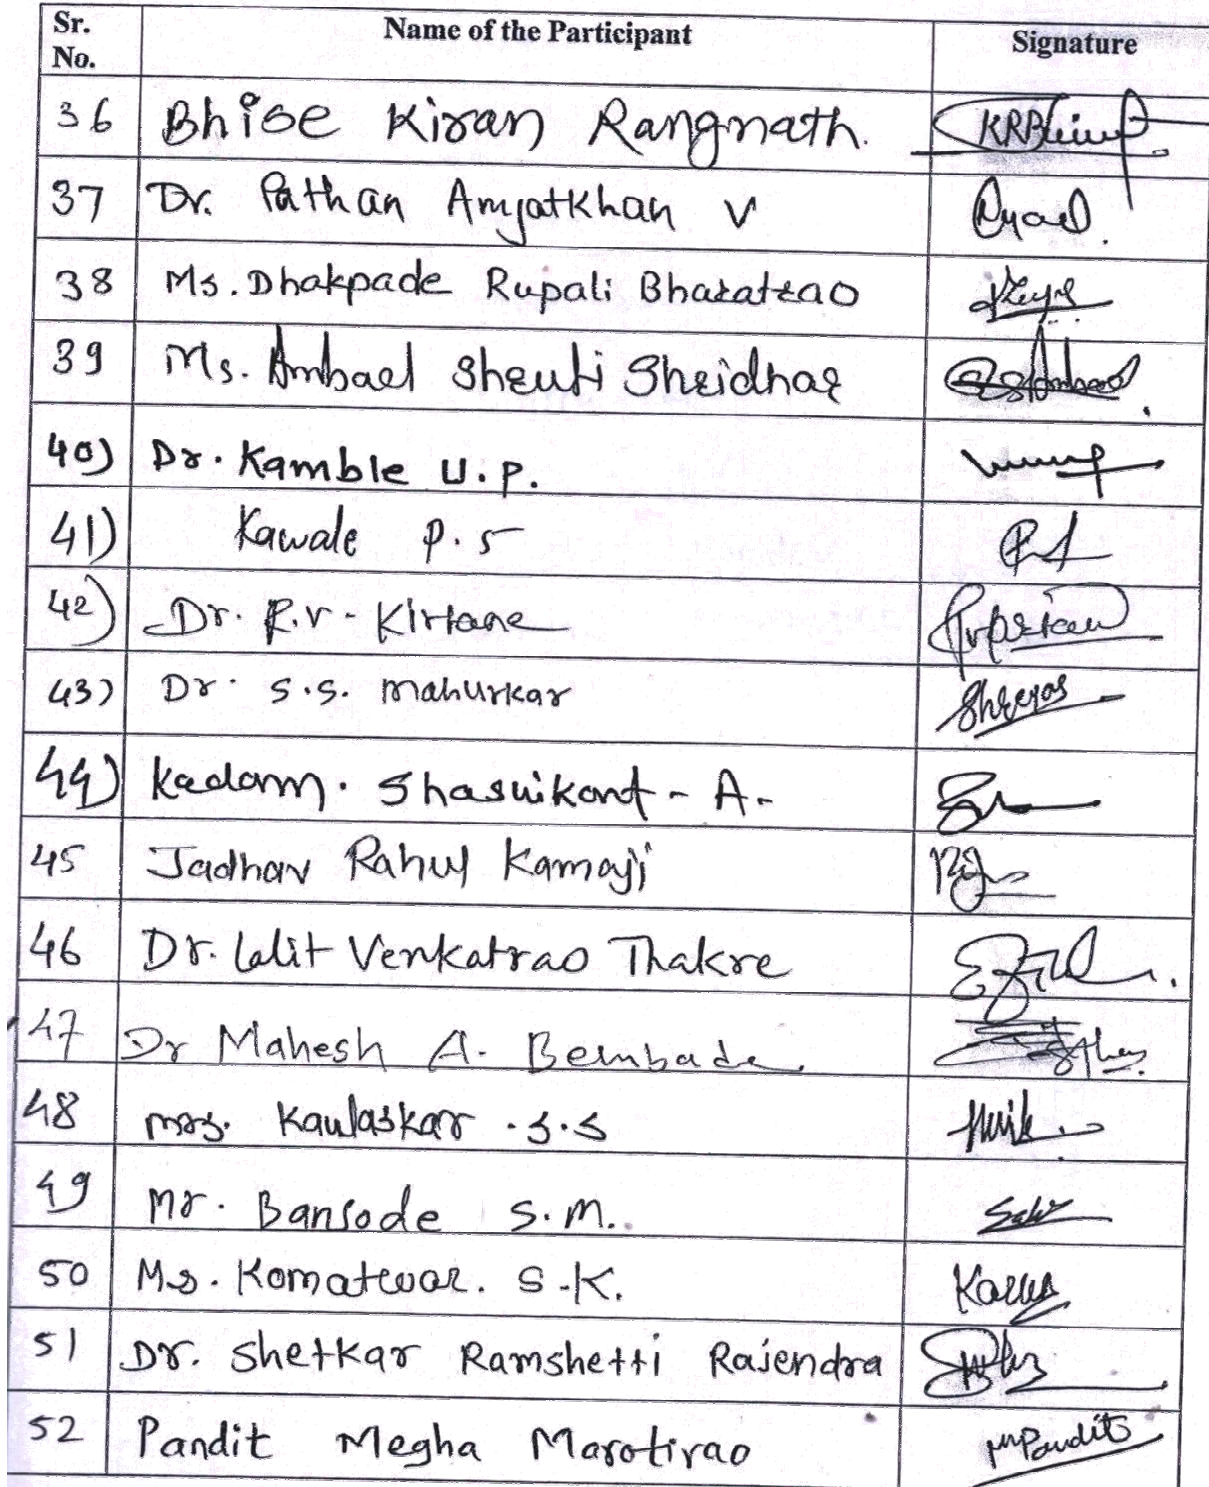 Sr. No. Name of the Participant Signature
36 Bhise Kiran Rangnath. KRBhise
37 Dr. Pathan Amjatkhan V
38 Ms. Dhakpade Rupali Bharatrao
39 Ms. Ambael Shruti Shridhar
40) Dr. Kamble U.P.
41) Kawale P.S
42) Dr. R.V. Kirtane
43) Dr. S.S. Mahurkar Shreyas
44) Kadam. Shasikant - A.
45 Jadhav Rahul Kamaji
46 Dr. Lalit Venkatrao Thakre
47 Dr Mahesh A. Bembade.
48 Mrs. Kaulaskar .S.S
49 Mr. Bansode S.M.
50 Ms. Komatwar. S.K.
51 Dr. Shetkar Ramshetti Rajendra
52 Pandit Megha Marotirao MPandit